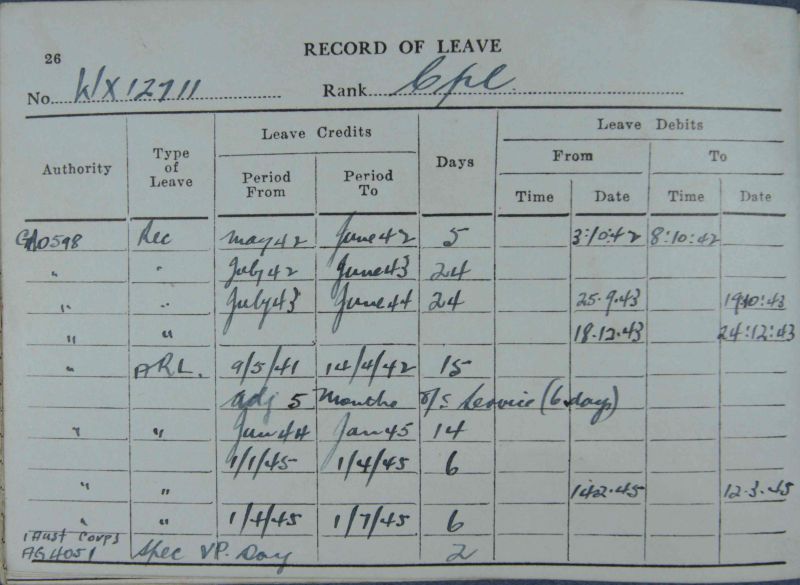 26
RECORD OF LEAVE
No. WX12711 Rank Cpl
Authority Type of Leave Leave Credits Days Leave Debits
Period From Period To From To
Time Date Time Date
GRO598 Rec May 42 June 42 5 3:10:42 8:10:42
" " July 42 June 43 24
" " July 43 June 44 24 25.9.43 19:10:43
" " 18.12.43 24:12:43
" ARL. 9/5/41 14/4/42 15
adj 5 Months o/s Service (6 days)
" " Jan 45 14
1/1/45 1/4/45 6
" " 12.3.45
" " 1/4/45 1/7/45 6
1 Aust Corps
AG4051 Spec VP. Day 2